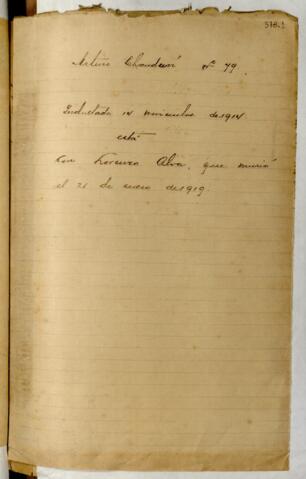 Arturo Chaudurí nº 79.
Indultado 14 noviembre de 1914
está
con Lorenzo Alva, que murió
el 21 de enero de 1919.